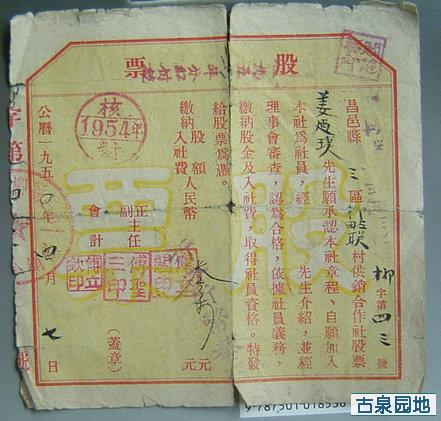 股票
昌邑縣 三 區 聯 村供銷合作社股票
柳 字第 四三 號
姜 璞 先生願承認本社章程、自願加入
本社爲社員，經 先生介紹，並經
理事會審查，認爲合格，依據社員義務，
繳納股金及入社費，取得社員資格。特發
給股票爲憑。
繳納 股額 人民幣 元
入社費 元
正
副 主任
會計
(蓋章)
核
1954年
對
公曆一九五〇年 四 月 七 日
字第
股票
9 787501 018550
古泉园地